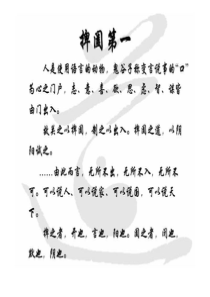 捭阖第一
人是使用语言的动物，鬼谷子称変言说事的“口”
为心之门户，志、意、喜、欲、思、虑、智、谋皆
由门出入。
故关之以捭阖，制之以出入。捭阖之道，以阴
阳试之。
……由此而言，无所不出，无所不入，无所不
可。可以说人，可以说家，可以说国，可以说天
下。
捭之者，开也，言也，阳也。阖之者，闭也，
默也，阴也。